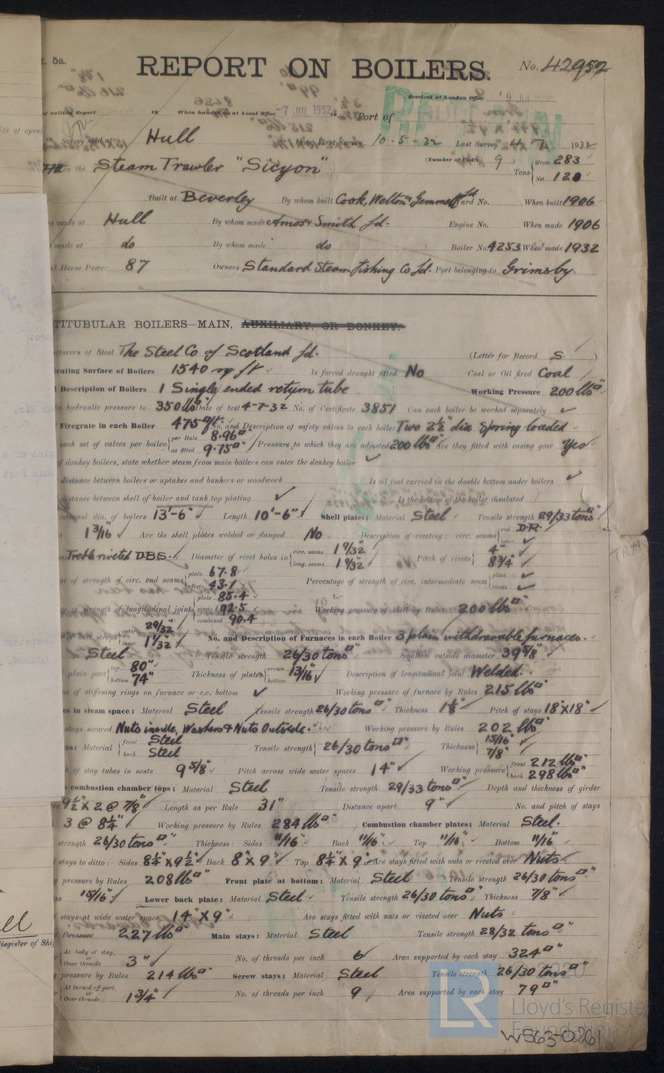 5a.
REPORT ON BOILERS.
No. 42952
Received at London Office
writing Report When handed in at Local Office -7 JUL 1932 Port of
Hull 10-5-32 Last Survey 1932
on the Steam Trawler "Sicyon" (Number of Visits 9) Gross 283
Tons Net 120
Built at Beverley By whom built Cook, Welton & Gemmell Ld Yard No. When built 1906
made at Hull By whom made Amos & Smith Ld. Engine No. When made 1906
made at do By whom made do Boiler No. 4253 When made 1932
Horse Power 87 Owners Standard Steam Fishing Co Ld. Port belonging to Grimsby.
TITUBULAR BOILERS—MAIN, AUXILIARY OR DONKEY.
of Steel The Steel Co of Scotland Ld. (Letter for Record S)
Heating Surface of Boilers 1540 sq ft Is forced draught fitted No Coal or Oil fired Coal
Description of Boilers 1 Single ended return tube Working Pressure 200 lbs
hydraulic pressure to 350 lbs Date of test 4-7-32 No. of Certificate 3851 Can each boiler be worked separately ✓
Firegrate in each Boiler 47.5 No. and Description of safety valves to each boiler Two 2½" dia Spring loaded
each set of valves per boiler per Rule 8.96 as fitted 9.75 Pressure to which they are adjusted 200 lbs Are they fitted with easing gear Yes
of donkey boilers, state whether steam from main boilers can enter the donkey boiler ✓
distance between boilers or uptakes and bunkers or woodwork Is oil fuel carried in the double bottom under boilers ✓
distance between shell of boiler and tank top plating ✓ Is the bottom of the boiler insulated
dia. of boilers 13'-6" Length 10'-6" Shell plates: Material Steel Tensile strength 29/33 tons
1 3/16" Are the shell plates welded or flanged No Description of riveting: circ. seams end D.R.
Treble riveted D.B.S. Diameter of rivet holes in circ. seams 1 9/32 long. seams 1 9/32 Pitch of rivets 4" 8¾"
of strength of circ. end seams plate 67.8 43.1 Percentage of strength of circ. intermediate seam plate
of strength of longitudinal joint plate 85.4 92.5 combined 90.4 Working pressure of shell by Rules 200 lbs
29/32 1 1/32 No. and Description of Furnaces in each Boiler 3 plain withdrawable furnaces.
Steel Tensile strength 26/30 tons Smallest outside diameter 39 5/8"
plain part top 80" bottom 74" Thickness of plates 13/16" Description of longitudinal joint Welded.
of stiffening rings on furnace or c.c. bottom ✓ Working pressure of furnace by Rules 215 lbs
in steam space: Material Steel Tensile strength 26/30 tons Thickness 1 1/8" Pitch of stays 18" x 18"
stays secured Nuts inside, Washers & Nuts Outside. Working pressure by Rules 202 lbs
Material front Steel back Steel Tensile strength 26/30 tons Thickness 15/16" 7/8"
of stay tubes in nests 9 5/8" Pitch across wide water spaces 14" Working pressure front 212 lbs back 298 lbs
combustion chamber tops: Material Steel Tensile strength 29/33 tons Depth and thickness of girder
9½" x 2 @ 7/8" Length as per Rule 31" Distance apart 9" No. and pitch of stays
3 @ 8¼" Working pressure by Rules 284 lbs Combustion chamber plates: Material Steel.
strength 26/30 tons Thickness: Sides 11/16" Back 11/16" Top 11/16" Bottom 11/16"
stays to ditto: Sides 8¼" x 9½" Back 8" x 9" Top 8¼" x 9" Are stays fitted with nuts or riveted over Nuts
pressure by Rules 208 lbs Front plate at bottom: Material Steel Tensile strength 26/30 tons
15/16" Lower back plate: Material Steel Tensile strength 26/30 tons Thickness 7/8"
stays at wide water space 14" x 9" Are stays fitted with nuts or riveted over Nuts
Pressure 227 lbs Main stays: Material Steel Tensile strength 28/32 tons
At body of stay, or Over threads 3" No. of threads per inch 6 Area supported by each stay 324
pressure by Rules 214 lbs Screw stays: Material Steel Tensile strength 26/30 tons
At turned off part, or Over threads 1¾" No. of threads per inch 9 Area supported by each stay 79
Register of Ship
LR
© 2020
Lloyd's Register
Foundation
W563-0261